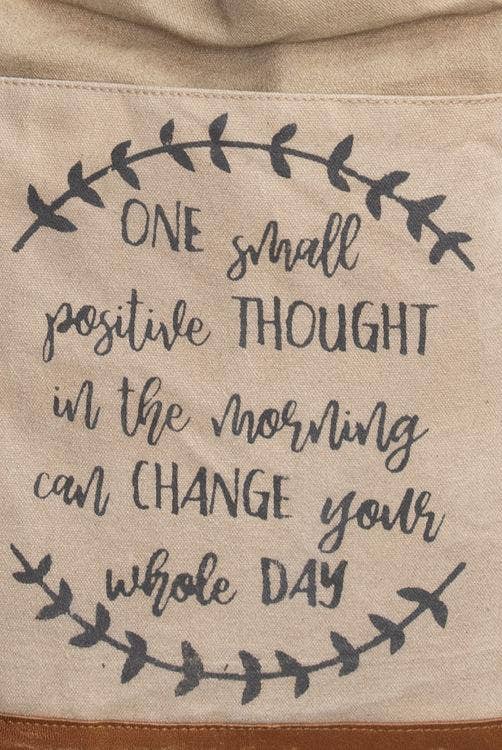 ONE small
positive THOUGHT
in the morning
can CHANGE your
whole DAY